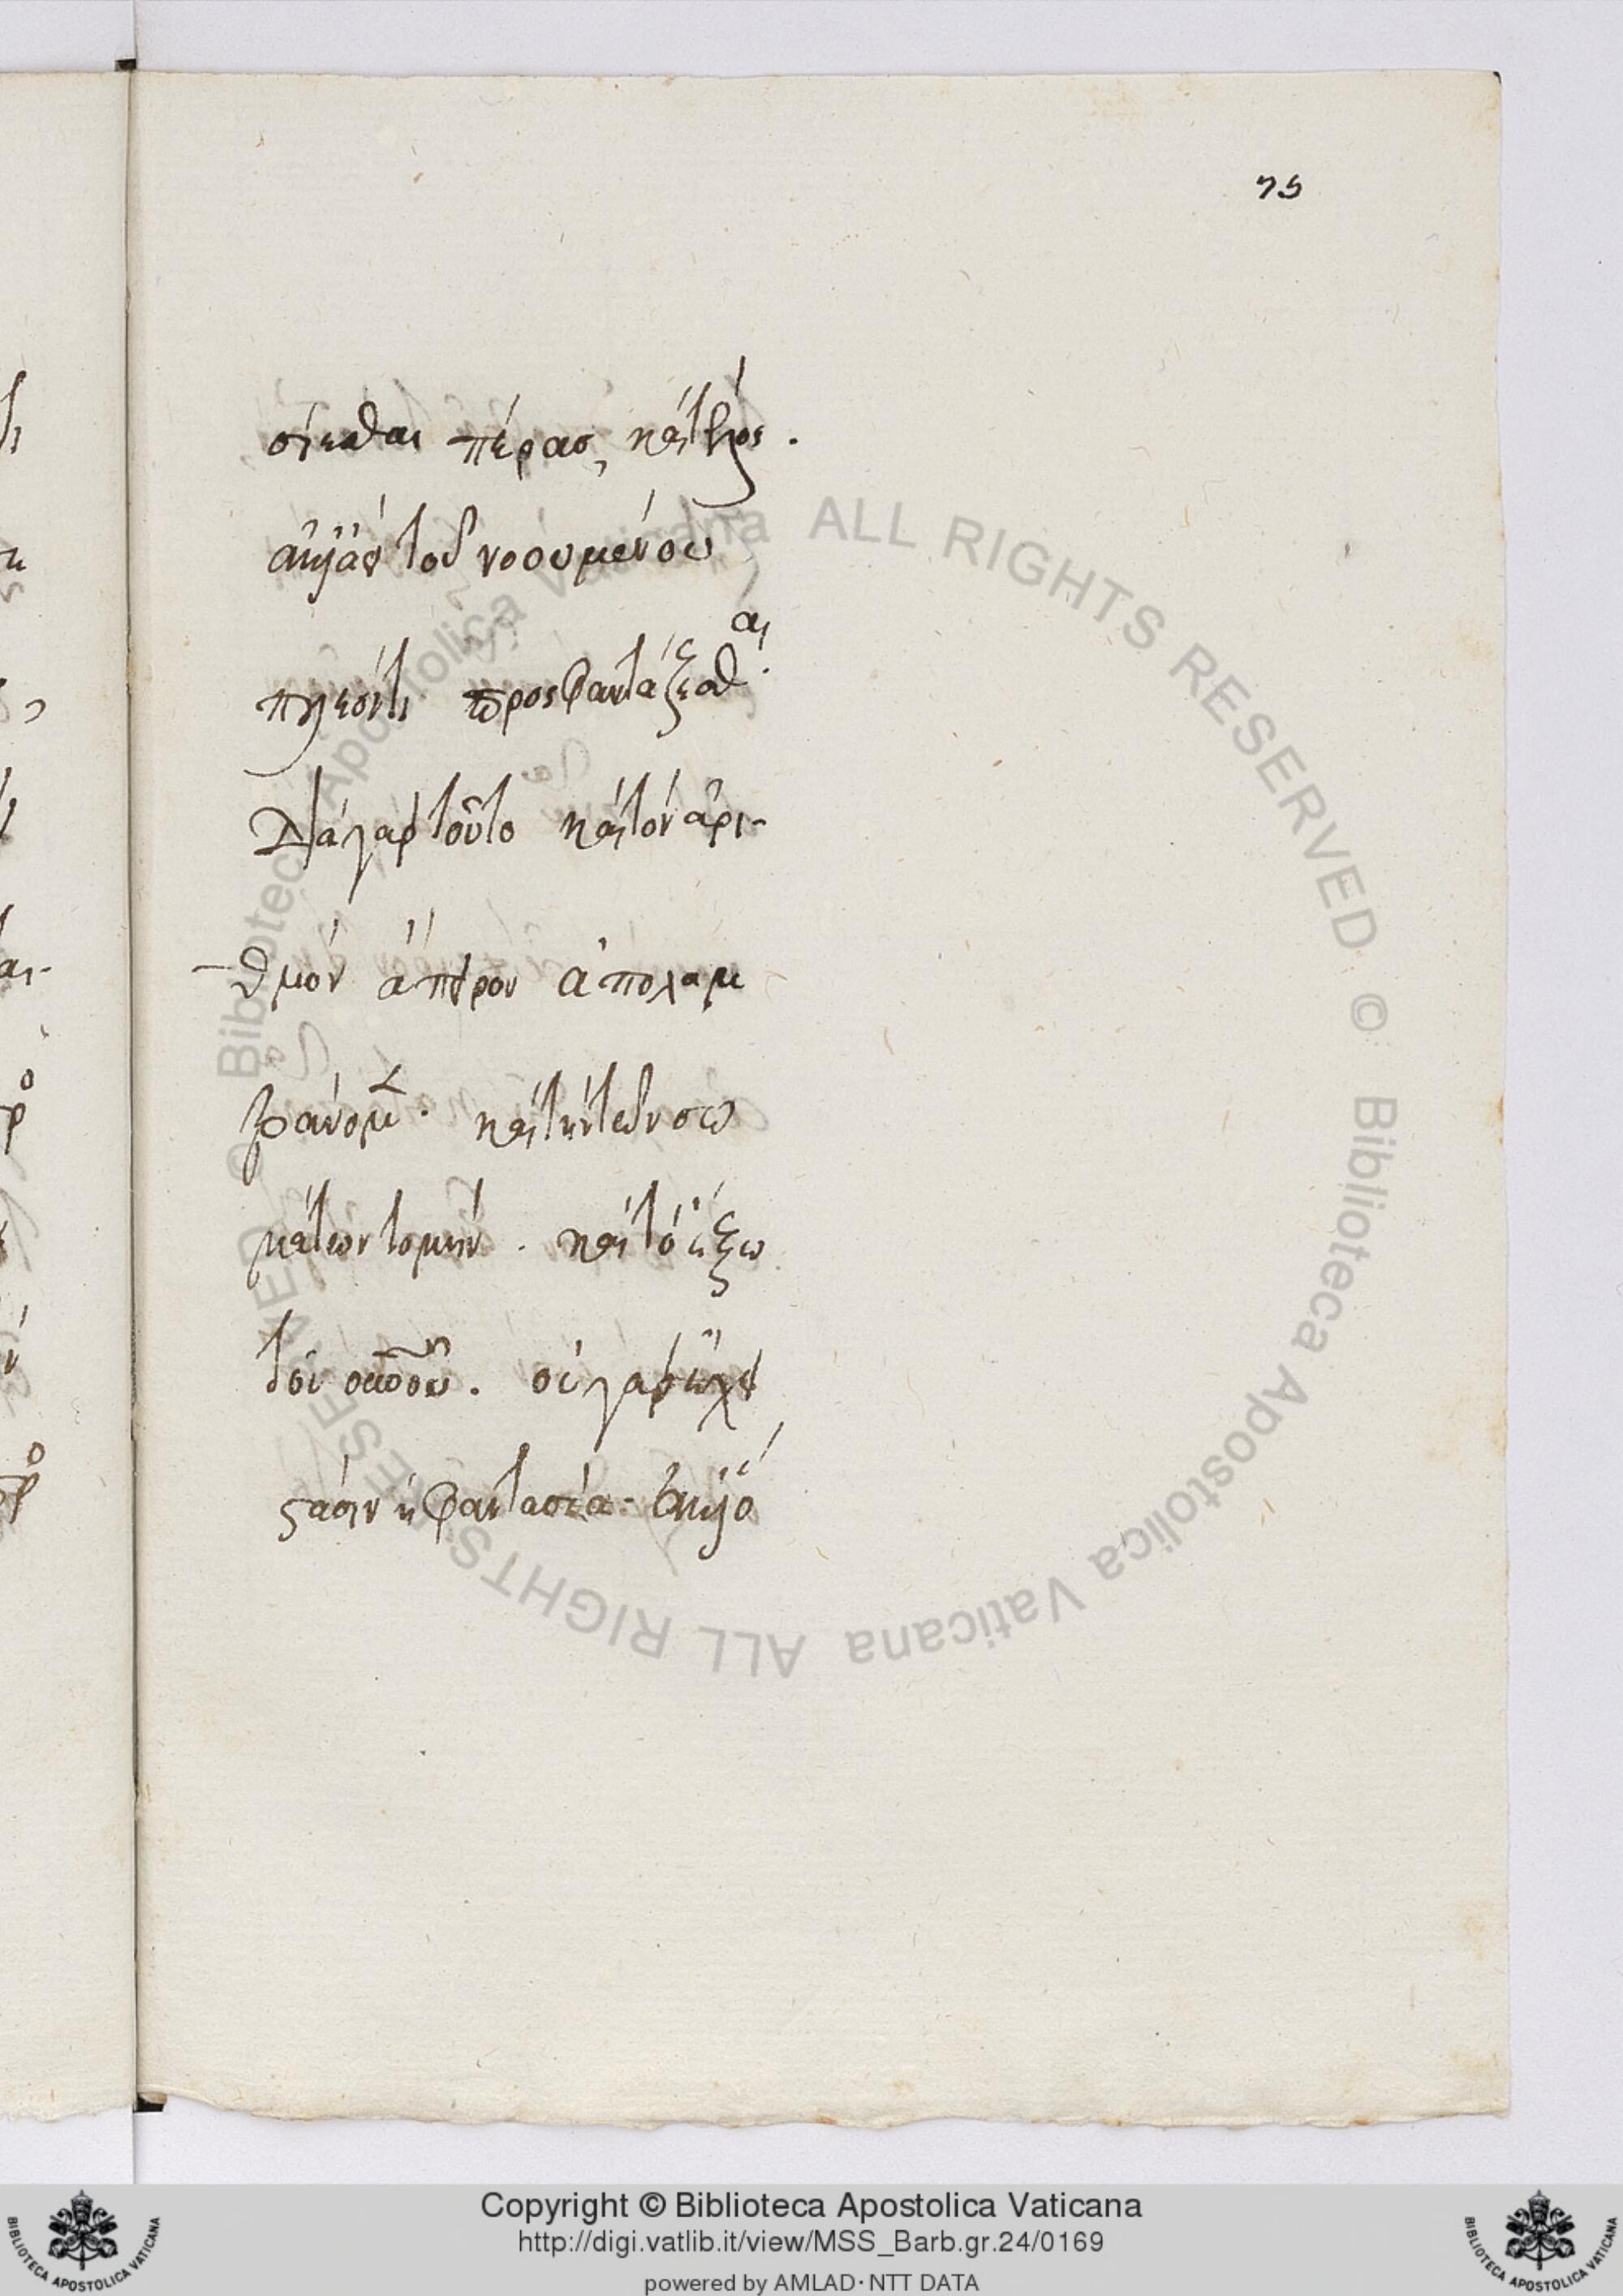 75
σίεσθαι πέρας, καὶ τέλος.
ἀλλ' ἀεὶ τοῦ νοουμένου
πλέον τι προσφαντάζεσθαι.
Διὰ γὰρ τοῦτο καὶ τὸν ἀρι-
θμὸν ἄπειρον ἀπολαμ
βάνομεν. καὶ τὴν τῶν σω
μάτων τομήν. καὶ τὸ ἔξω
τοῦ οὐρανοῦ. οὐ γὰρ ἔχει
στάσιν ἡ φαντασία.
Biblioteca Apostolica Vaticana ALL RIGHTS RESERVED © Biblioteca Apostolica Vaticana ALL RIGHTS RESERVED ©
Copyright © Biblioteca Apostolica Vaticana
http://digi.vatlib.it/view/MSS_Barb.gr.24/0169
powered by AMLAD·NTT DATA
BIBLIOTECA APOSTOLICA VATICANA
BIBLIOTECA APOSTOLICA VATICANA